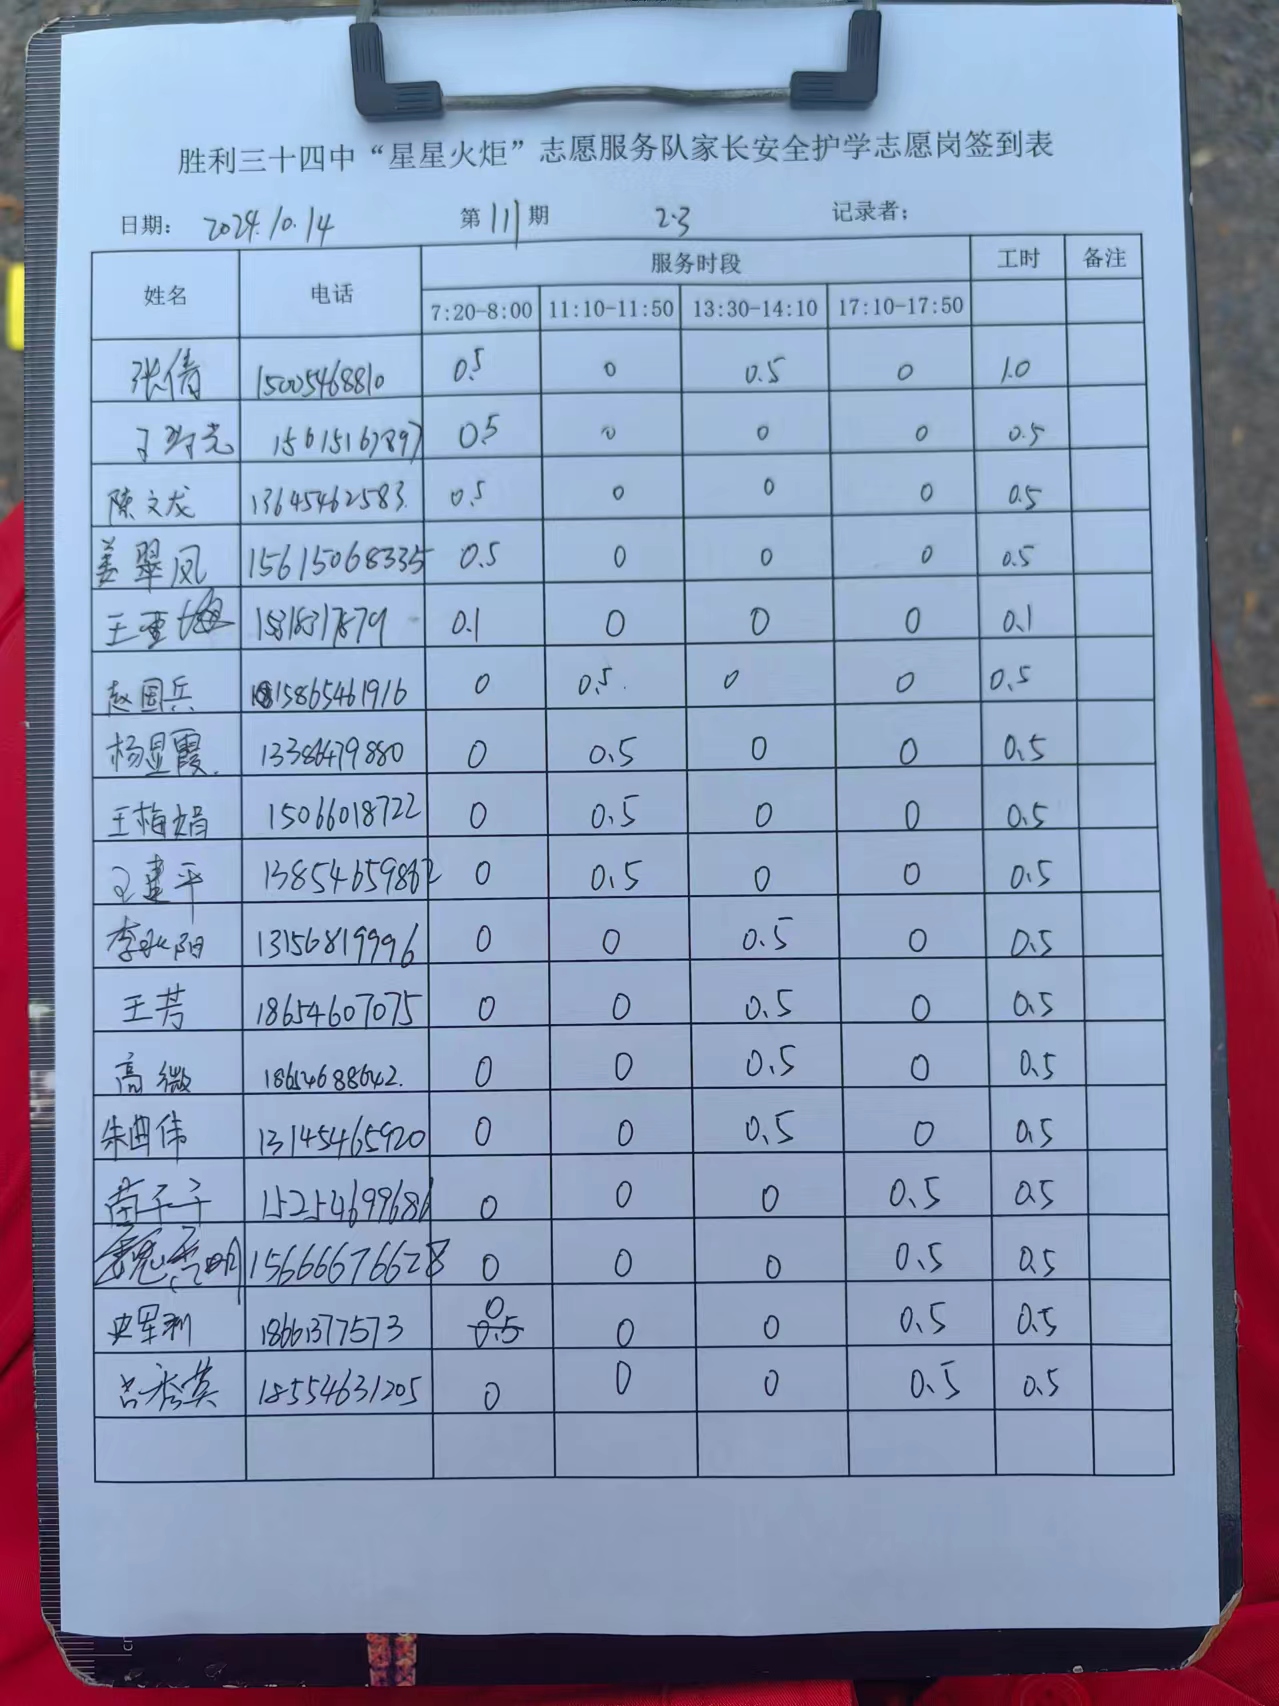 胜利三十四中“星星火炬”志愿服务队家长安全护学志愿岗签到表
日期: 2024.10.14 第111期 2.3 记录者:
姓名 电话 服务时段 工时 备注
7:20-8:00 11:10-11:50 13:30-14:10 17:10-17:50
张倩 15005468810 0.5 0 0.5 0 1.0
15615167897 0.5 0 0 0 0.5
陈文龙 13645462583 0.5 0 0 0 0.5
姜翠凤 15615068335 0.5 0 0 0 0.5
王重 0.1 0 0 0 0.1
赵国兵 15865461916 0 0.5 0 0 0.5
杨显霞 13386479880 0 0.5 0 0 0.5
王梅娟 15066018722 0 0.5 0 0 0.5
王建平 13854659862 0 0.5 0 0 0.5
李永阳 13156819996 0 0 0.5 0 0.5
王芳 18654607075 0 0 0.5 0 0.5
高微 18654688642 0 0 0.5 0 0.5
朱曲伟 13145465920 0 0 0.5 0 0.5
苗子子 15254699686 0 0 0 0.5 0.5
15666676628 0 0 0 0.5 0.5
史军利 18661377573 0 0.5 0 0 0.5 0.5
吕秀英 18554631205 0 0 0 0.5 0.5